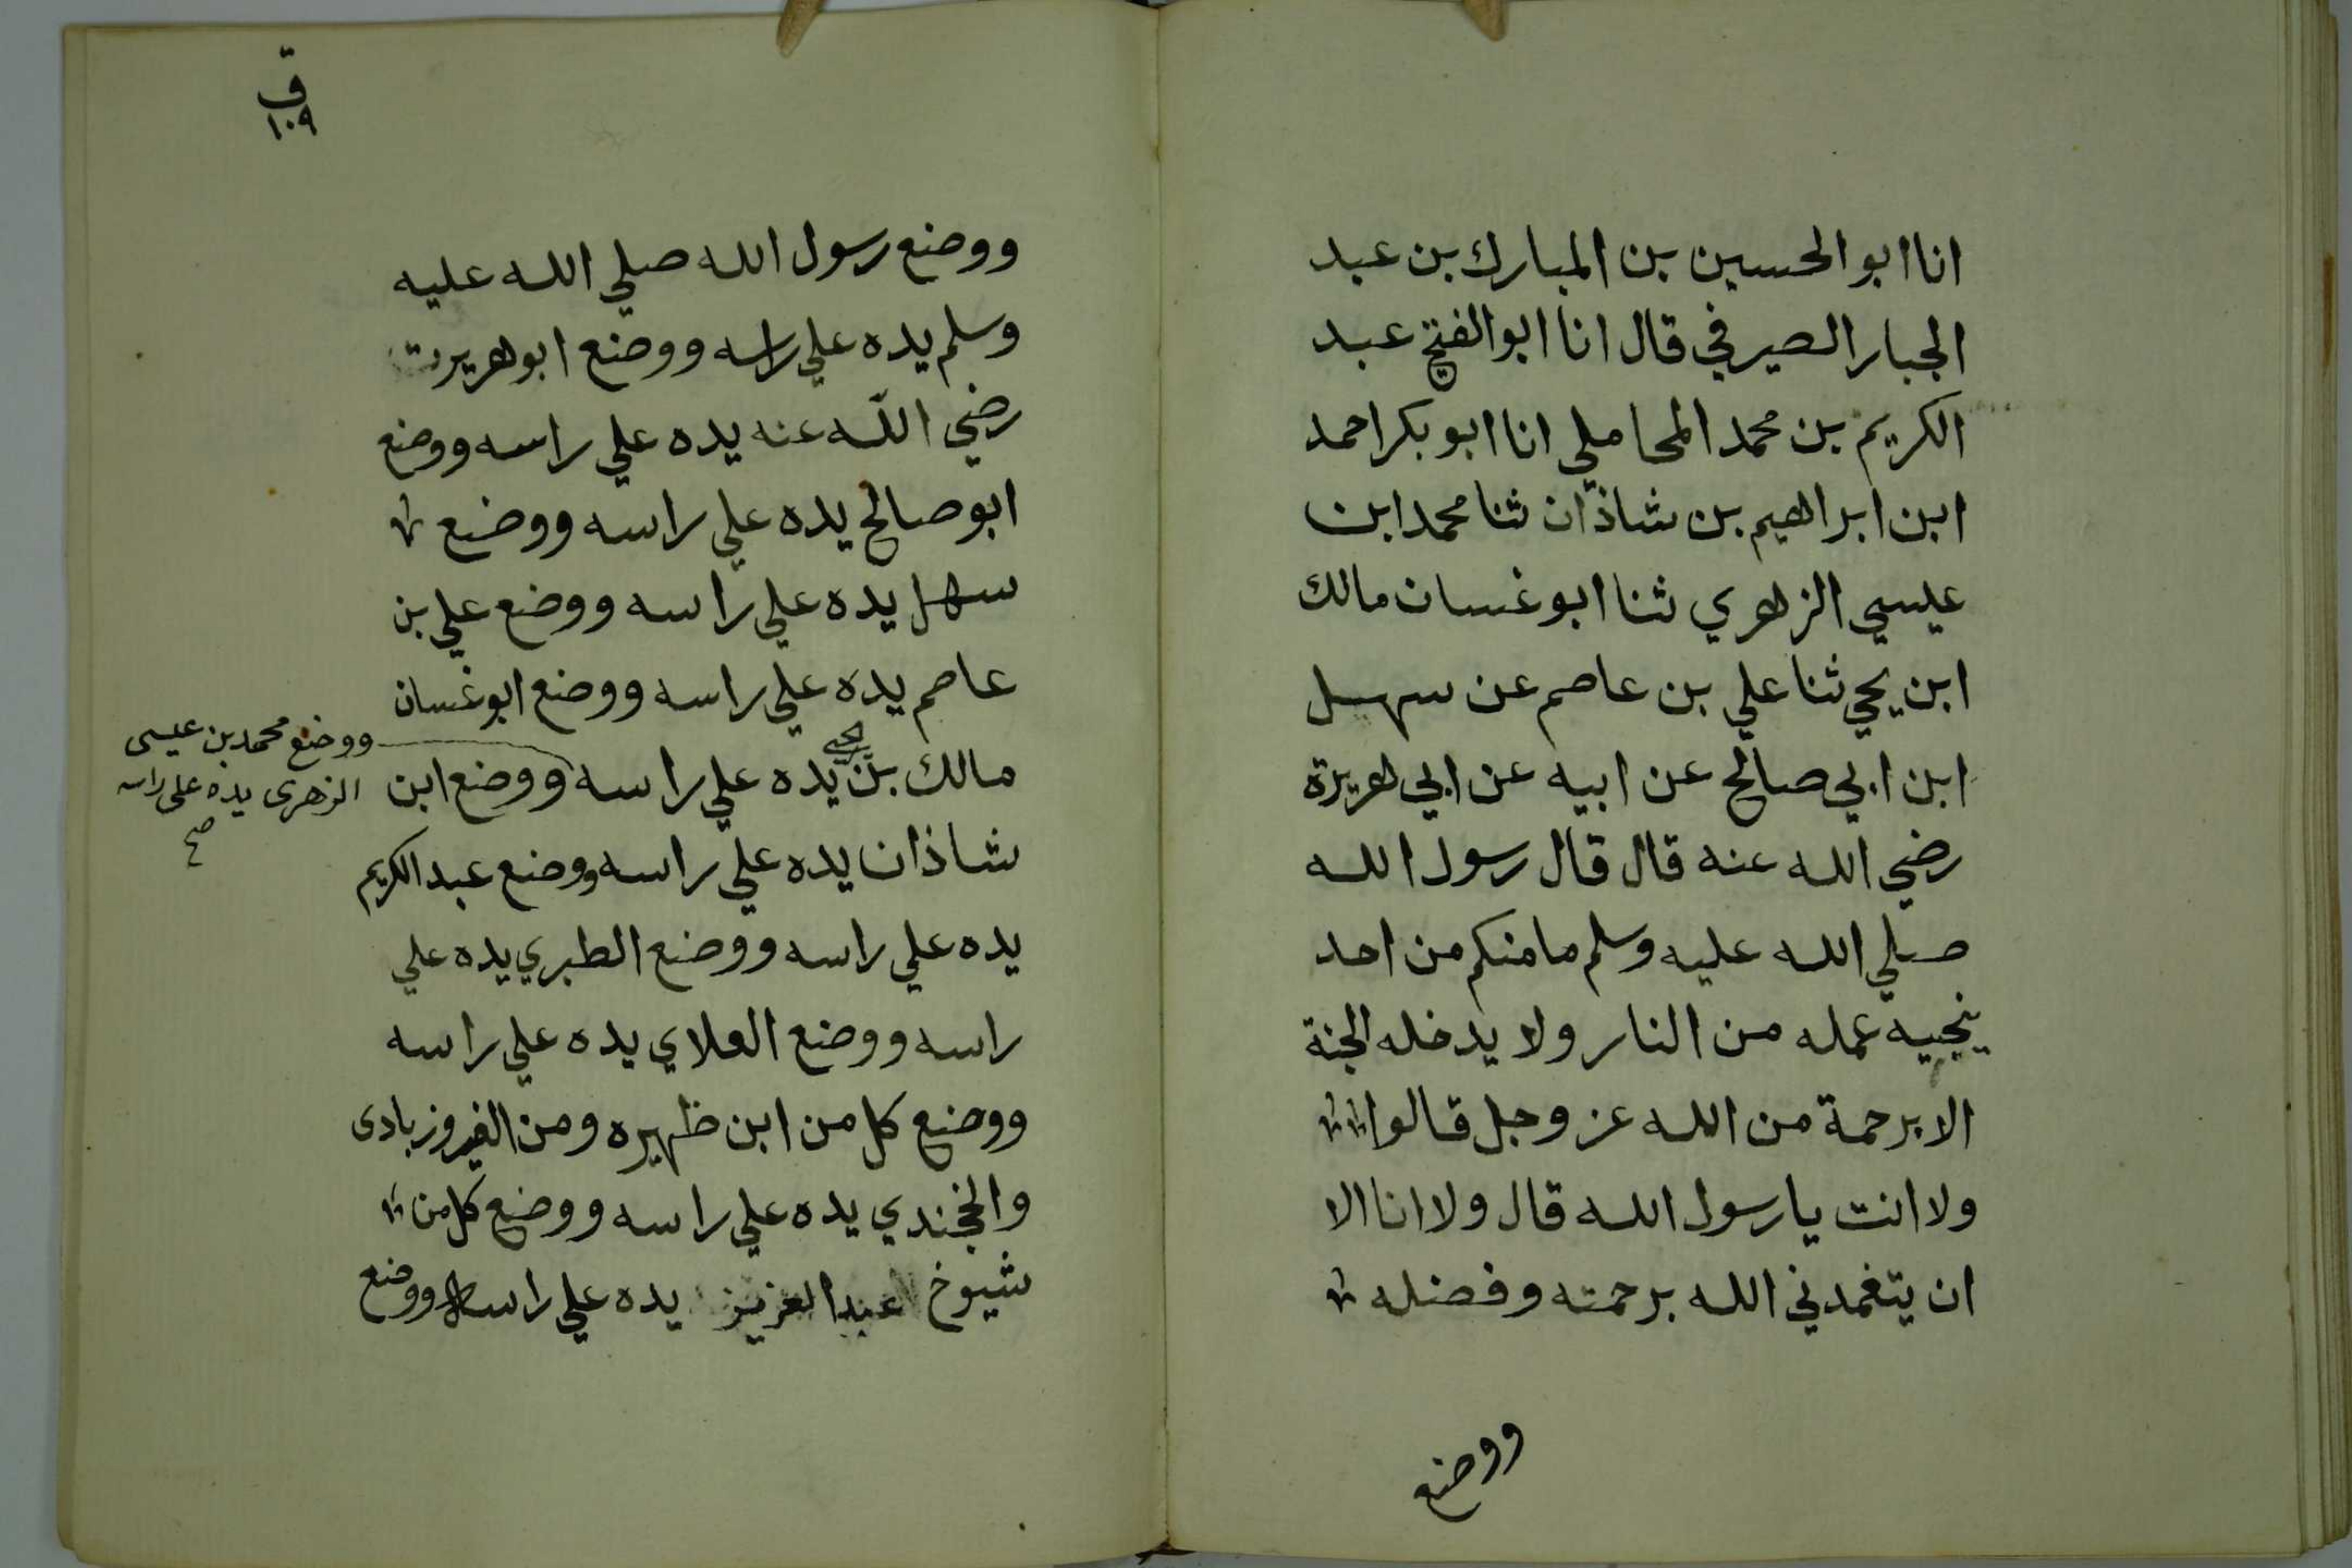 انا ابو الحسين بن المبارك بن عبد
الجبار الصيرفي قال انا ابو الفتح عبد
الكريم بن محمد المحاملي انا ابو بكر احمد
ابن ابراهيم بن شاذان ثنا محمد ابن
عيسي الزهري ثنا ابو غسان مالك
ابن يحي ثنا علي بن عاصم عن سهل
ابن ابي صالح عن ابيه عن ابي هريرة
رضي الله عنه قال قال رسول الله
صلي الله عليه وسلم ما منكم من احد
ينجيه عمله من النار ولا يدخله الجنة
الا برحمة من الله عز وجل قالوا
ولا انت يا رسول الله قال ولا انا الا
ان يتغمدني الله برحمته وفضله
ووضع
ق
١٠٩
ووضع رسول الله صلي الله عليه
وسلم يده علي راسه ووضع ابو هريرت
رضي الله عنه يده علي راسه ووضع
ابو صالح يده علي راسه ووضع
سهل يده علي راسه ووضع علي بن
عاصم يده علي راسه ووضع ابو غسان
مالك بن يحيى يده علي راسه ووضع ابن
شاذان يده علي راسه ووضع عبد الكريم
يده علي راسه ووضع الطبري يده علي
راسه ووضع العلاي يده علي راسه
ووضع كل من ابن ظهيره ومن الفيروزبادى
والخجندي يده علي راسه ووضع كل من
شيوخ عبد العزيز يده علي راسه ووضع
ووضع محمد بن عيسى
الزهرى يده على راسه
صح